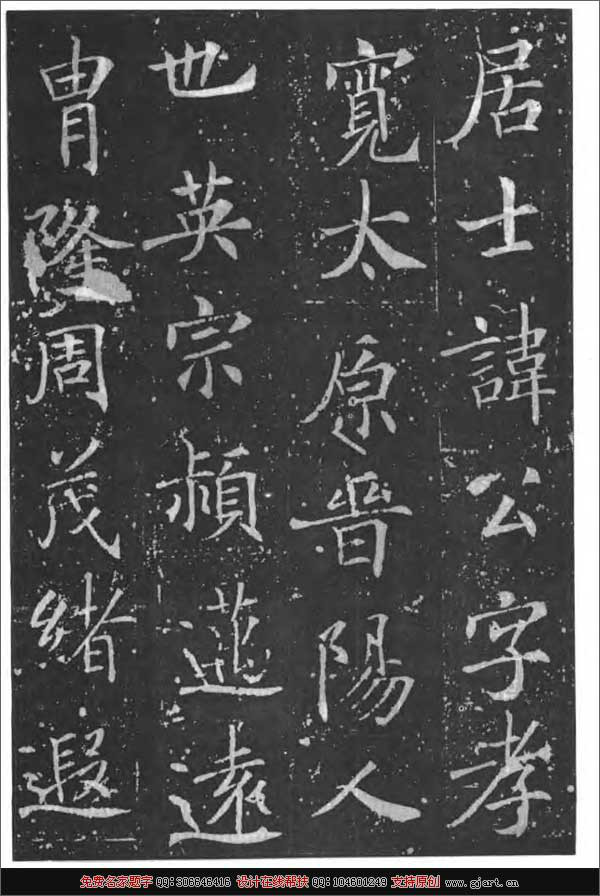 居士諱公字孝
寬太原晉陽人
也英宗穎邁遠
胄隆周茂緒遐
免费名家题字 QQ:306646416 设计在线帮扶 QQ:104601249 支持原创 www.gjart.cn